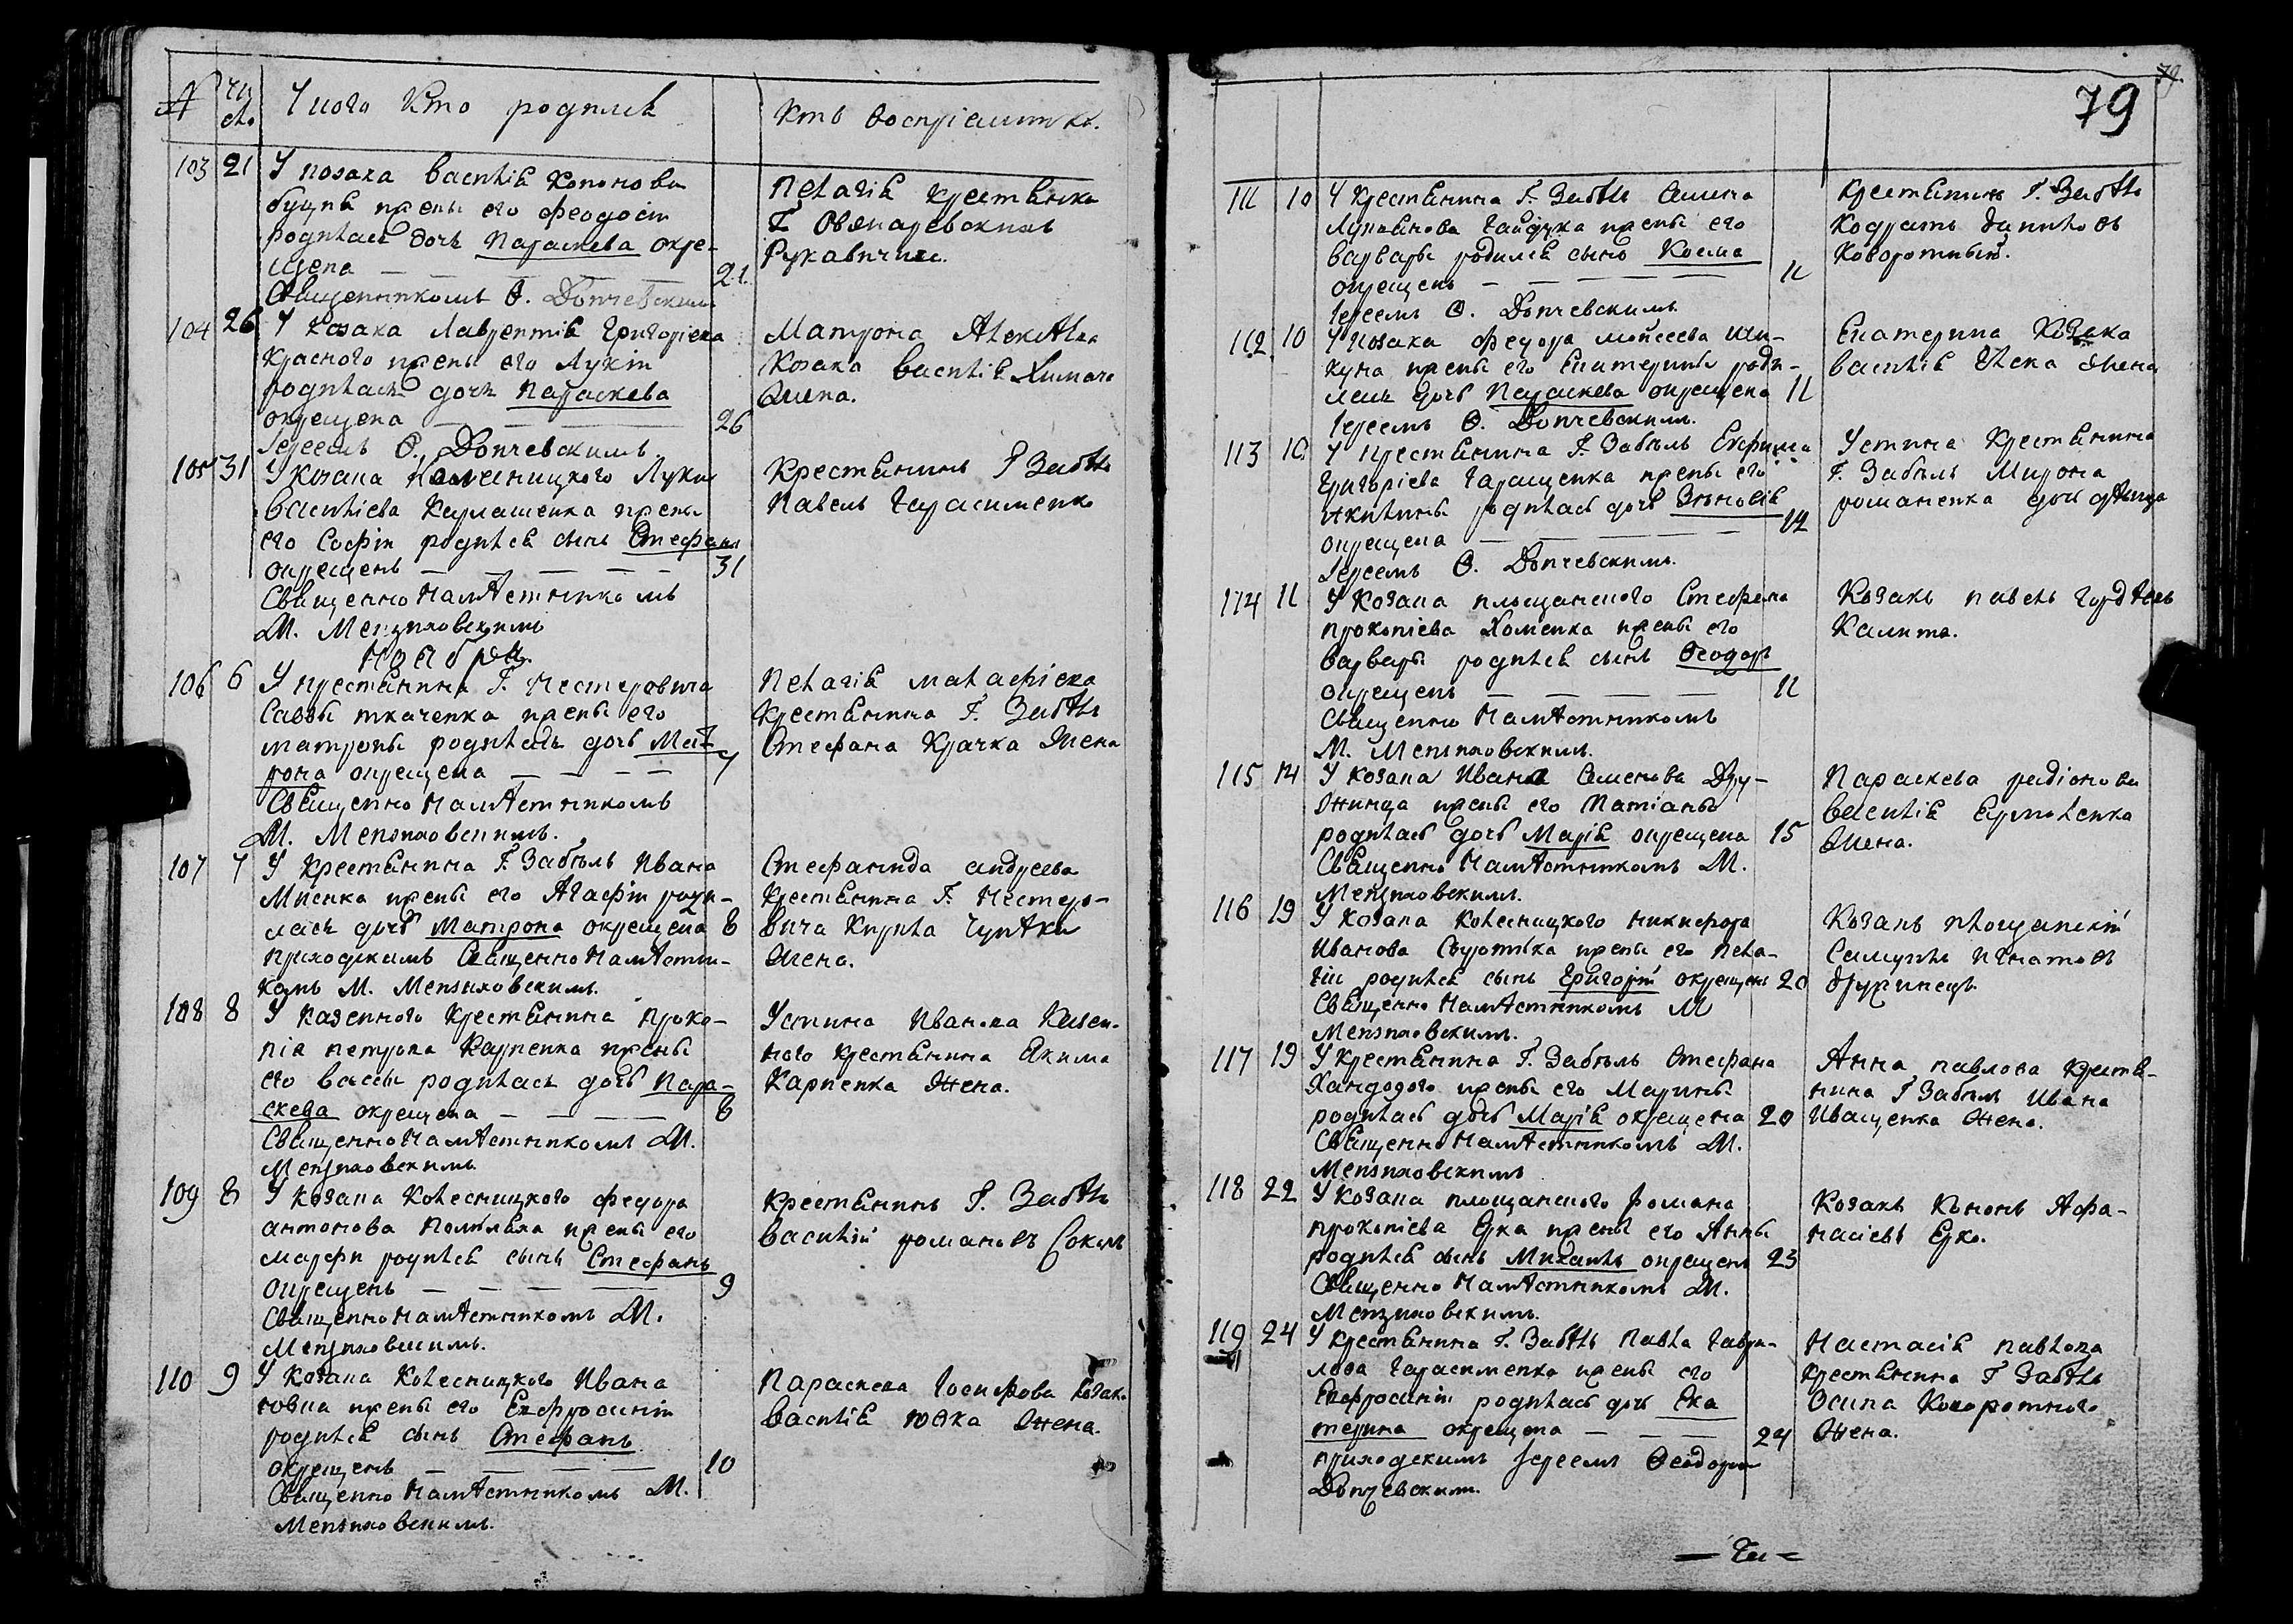 № Чи сло У кого кто родился
Кто восприемники.
103 21 У козака Василія Кононова
Буцня жены его Феодосіи
родилась дочь Параскева окре-
щена — — — 21.
Священникомъ Ѳ. Допчевскимъ
Пелагія крестьянка
Г. Рукавички.
104 26 У козака Лаврентія Григоріева
Красного жены его Лукіи
родилась дочь Параскева
окрещена — — — 26
Іереемъ Ѳ. Допчевскимъ
Матрона Алексѣева
козака Василія
жена.
105 31 У козака Лукы
Василіева Кармашенка жены
его Софіи родился сынъ Стефанъ
окрещенъ — — — — — 31
СвященноНамѣстникомъ
М. Мензиховскимъ
Крестьянинъ Г. Забѣлъ
Павелъ Гарасименко
Ноября.
106 6 У крестьянина Г. Нестеровича
Саввы Ткаченка жены его
Матроны родилась дочь Мат-
рона окрещена — — — — 7
СвященноНамѣстникомъ
М. Мензиховскимъ.
Пелагія Малафіева
крестьянина Г. Забѣлъ
Стефана Крачка жена
107 7 У крестьянина Г. Забѣлъ Ивана
Мисика жены его Агафіи роди-
лась дочь Матрона окрещена 8
приходскимъ СвященноНамѣстни-
комъ М. Мензиховскимъ.
Стефанида Андреева
крестьянина Г. Нестеро-
вича Кирила
жена.
108 8 У казенного крестьянина Проко-
пія Петрова Карпенка жены
его Вассы родилась дочь Пара-
скева окрещена — — — — 8
СвященноНамѣстникомъ М.
Мензиховскимъ
Устина Иванова казен-
ного крестьянина Акима
Карпенка жена.
109 8 У козака Колесницкого Федора
Антонова жены его
Марфи родился сынъ Стефанъ
окрещенъ — — — — 9
СвященноНамѣстникомъ М.
Мензиховскимъ.
Крестьянинъ Г. Забѣлъ
Василій Романовъ Соколъ
110 9 У козака Колесницкого Ивана
Ювка жены его Евфросиніи
родился сынъ Стефанъ
окрещенъ — — — — 10
СвященноНамѣстникомъ М.
Мензиховскимъ.
Параскева Іосифова козака
Василія Ювка жена.
79
111 10 У крестьянина Г. Забѣлъ Семена
Лукьянова Гайдука жены его
Варвары родился сынъ Косма
окрещенъ — — — — 11
Іереемъ Ѳ. Допчевскимъ
Крестьянинъ Г. Забѣлъ
Кодратъ Даниловъ
Коворотный.
112 10 У козака Федора Мойсеева Ши-
куна жены его Екатерины роди-
лась дочь Параскева окрещена 11
Іереемъ Ѳ. Допчевскимъ.
Екатерина козака
Василія жена
113 10 У крестьянина Г. Забѣлъ Евфима
Григоріева Гаращенка жены его
Акилины родилась дочь Зѣновія
окрещена — — — — 12
Іереемъ Ѳ. Допчевскимъ.
Устина крестьянина
Г. Забѣлъ Мирона
Романенка дочь дѣвица
114 11 У козака площанского Стефана
Прокопіева Хоменка жены его
Варвары родился сынъ Ѳеодоръ
окрещенъ — — — — 11
СвященноНамѣстникомъ
М. Мензиховскимъ.
Козакъ Павелъ Гордѣевъ
Калита.
115 14 У козака Ивана Семенова Дру-
жинца жены его Татіаны
родилась дочь Марія окрещена 15
СвященноНамѣстникомъ М.
Мензиховскимъ.
Параскева Радіонова
Василія Ермоленка
жена.
116 19 У козака Колесницкого Никифора
Иванова жены его Пела-
гіи родился сынъ Григорій окрещенъ 20
СвященноНамѣстникомъ М
Мензиховскимъ.
Козакъ площанскій
Самуилъ Игнатовъ
Дружинецъ.
117 19 У крестьянина Г. Забѣлъ Стефана
Хандогого жены его Марины
родилась дочь Марія окрещена 20
СвященноНамѣстникомъ М.
Мензиховскимъ
Анна Павлова крестья-
нина Г Забѣлъ Ивана
Иващенка жена.
118 22 У козака площанского Романа
Прокопіева Ерка жены его Анны
родился сынъ Михаилъ окрещенъ 23
СвященноНамѣстникомъ М.
Мензиховскимъ.
Козакъ Кононъ Афа-
насіевъ Ерко.
119 24 У крестьянина Г. Забѣлъ Павла Гаври-
лова Гарасименка жены его
Евфросиніи родилась дочь Ека
терина окрещена — — — 24
приходскимъ Іереемъ Ѳеодоромъ
Допчевскимъ.
Настасія Павлова
крестьянина Г Забѣлъ
Осипа Коворотного
жена.